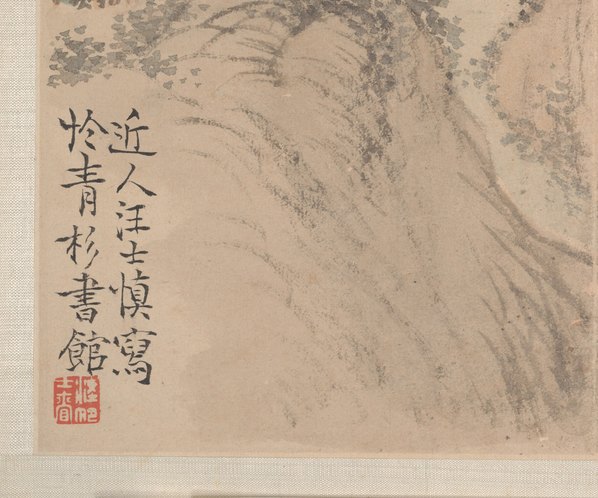 近人汪士慎寫
於青杉書館